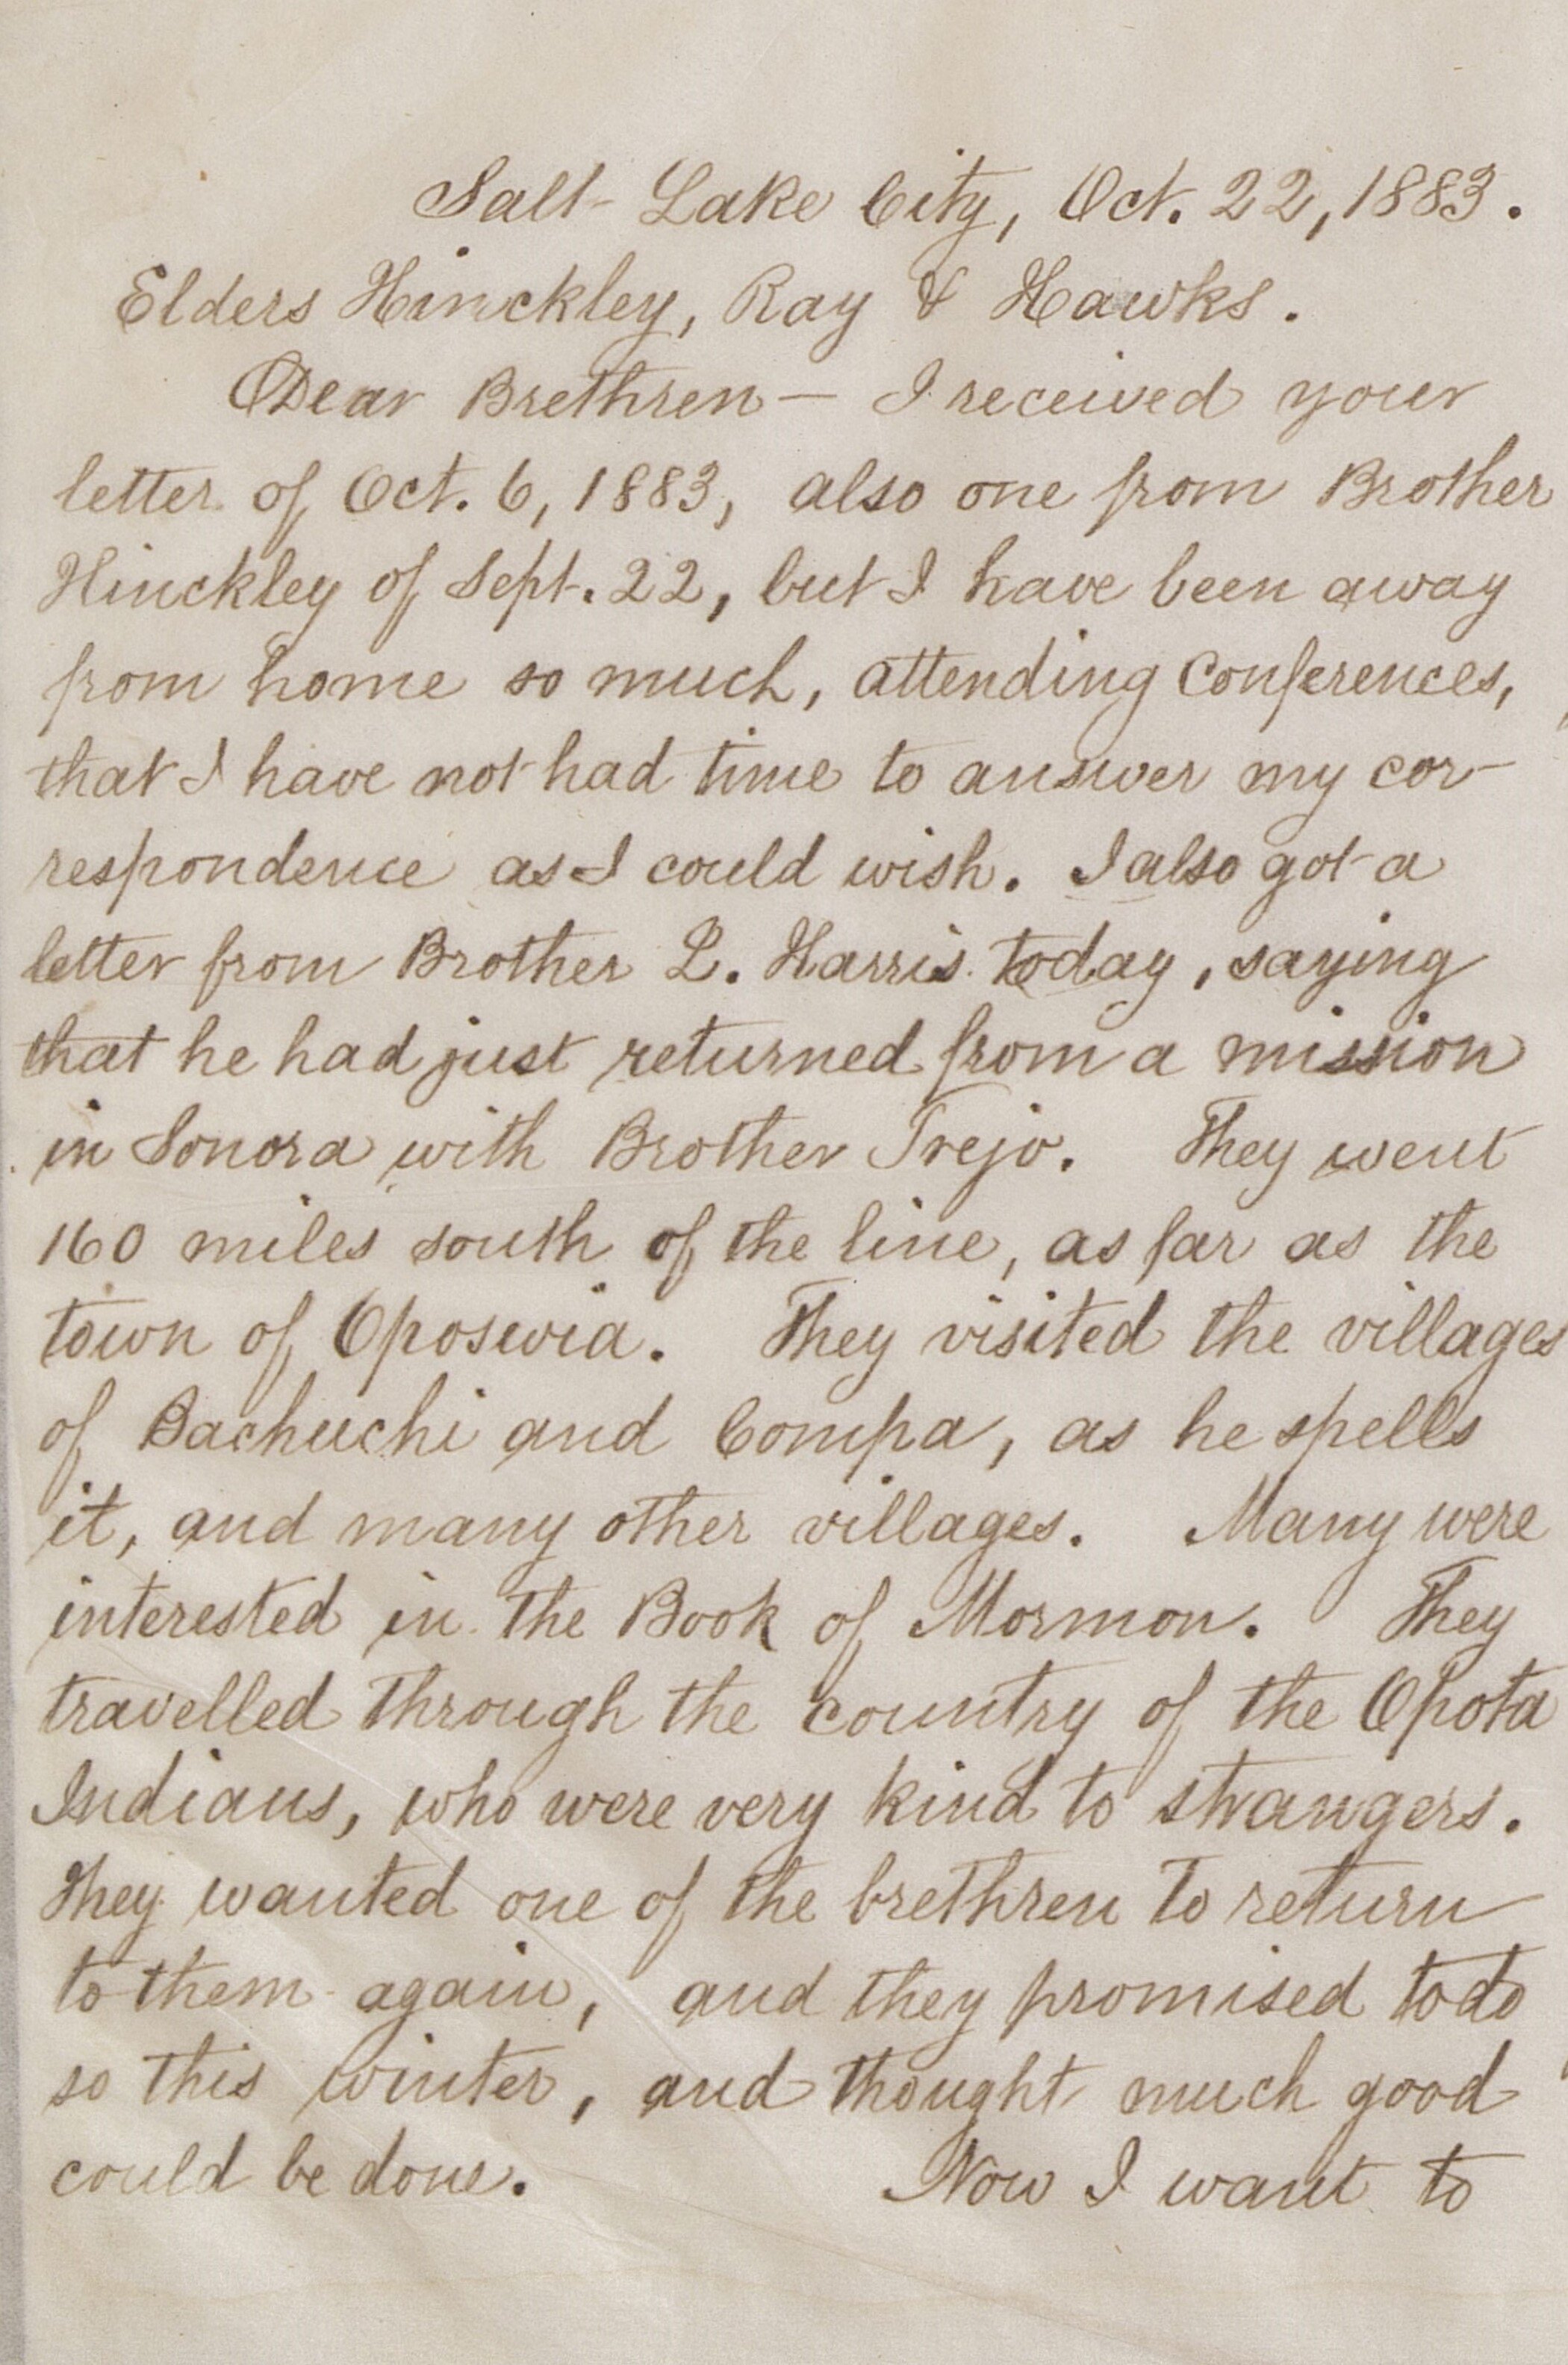 Salt Lake City, Oct. 22, 1883.
Elders Hinckley, Ray & Hawks.
Dear Brethren — I received your
letter of Oct. 6, 1883, also one from Brother
Hinckley of Sept. 22, but I have been away
from home so much, attending Conferences,
that I have not had time to answer my cor-
respondence as I could wish. I also got a
letter from Brother L. Harris today, saying
that he had just returned from a mission
in Sonora with Brother Trejo. They went
160 miles south of the line, as far as the
town of Oposuria. They visited the villages
of Bachuchi and Compa, as he spells
it, and many other villages. Many were
interested in the Book of Mormon. They
travelled through the country of the Opota
Indians, who were very kind to strangers.
They wanted one of the brethren to return
to them again, and they promised to do
so this winter, and thought much good
could be done. Now I want to